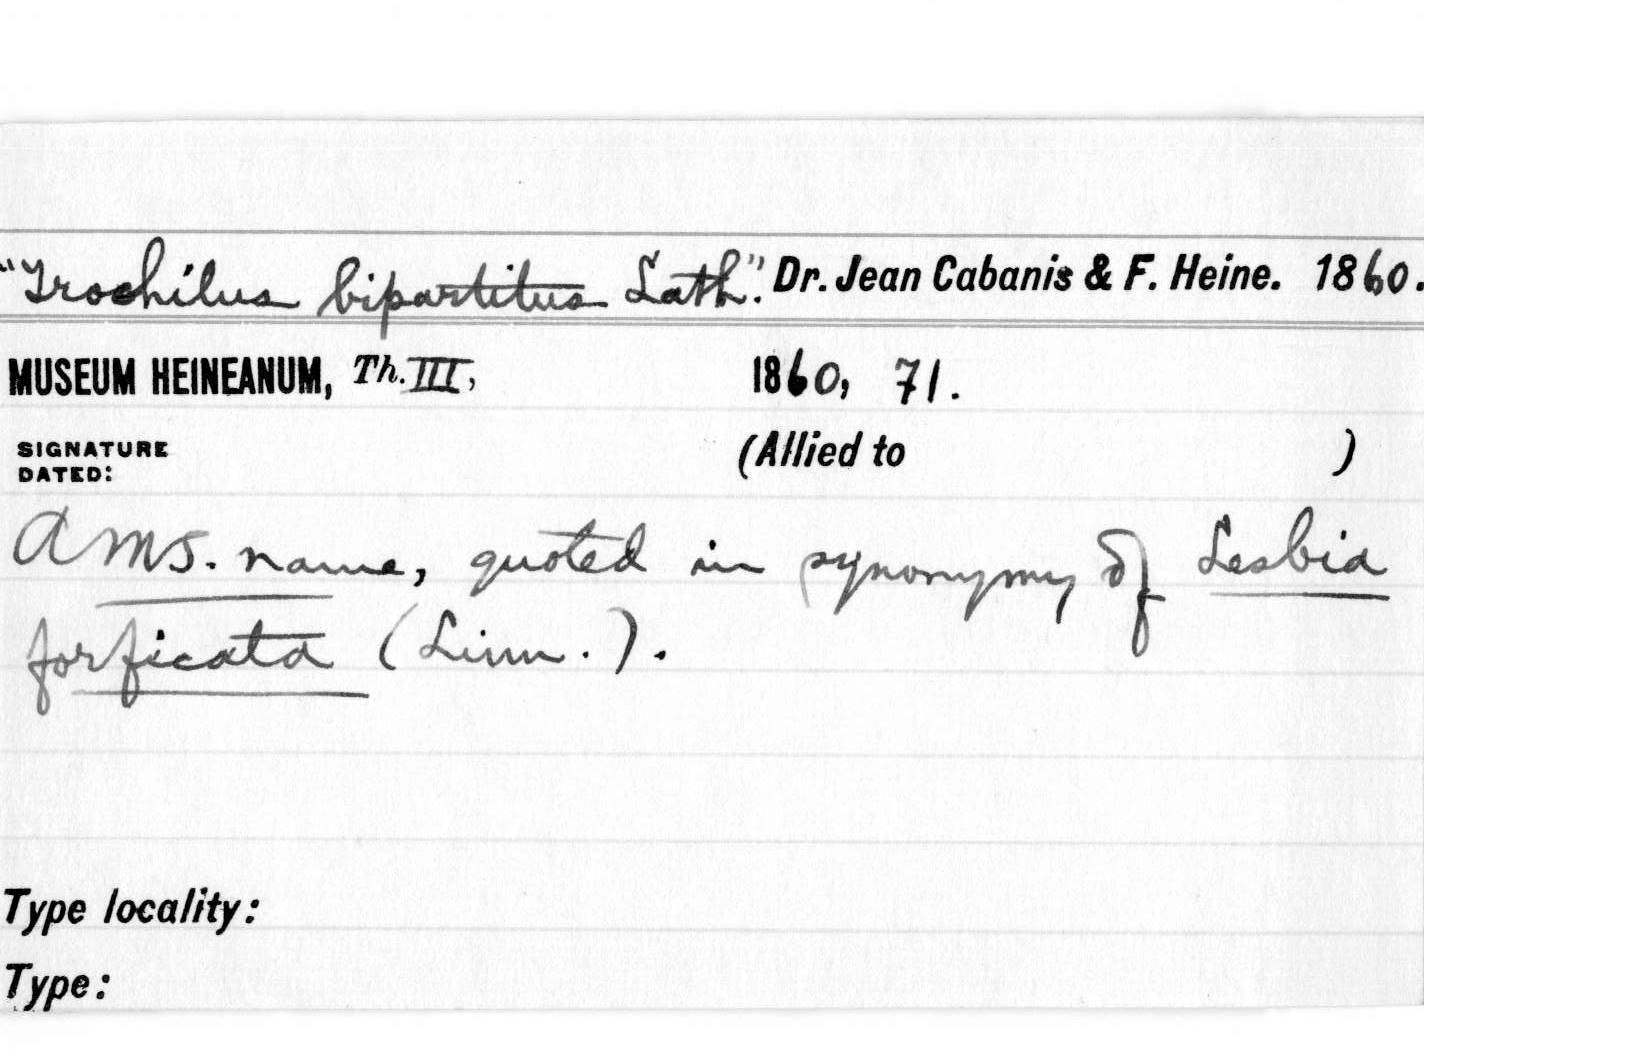 "Trochilus bipartitus Lath". Dr. Jean Cabanis & F. Heine. 1860.
MUSEUM HEINEANUM, Th. III, 1860, 71.
SIGNATURE
DATED: (Allied to )
A MS. name, quoted in synonymy of Lesbia
forficata (Linn.).
Type locality:
Type: